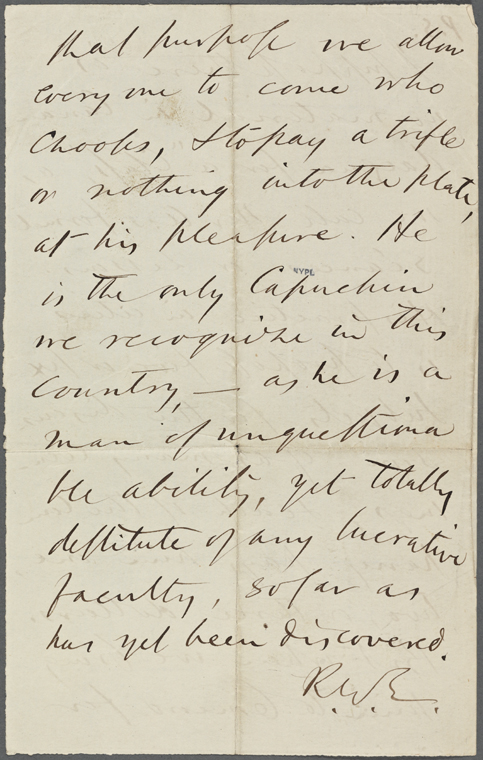 that purpose we allow
every one to come who
chooses, & to pay a trifle
or nothing into the plate,
at his pleasure. He
NYPL
is the only Capuchin
we recognize in this
country, — as he is a
man of unquestiona
ble ability, yet totally
destitute of any lucrative
faculty, so far as
has yet been discovered.
R.W.E.